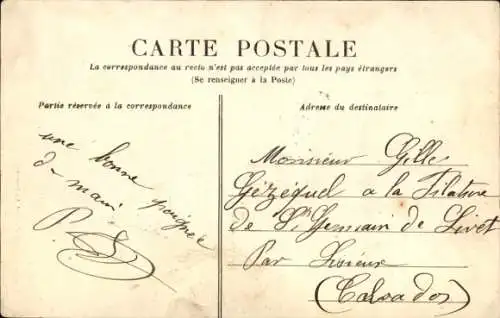 CARTE POSTALE
La correspondance au recto n'est pas acceptée par tous les pays étrangers
(Se renseigner à la Poste)
Partie réservée à la correspondance
Adresse du destinataire
une bonne poignée
d main
P
Monsieur Gille
Gézéquel a la Filature
de St Germain de Livet
Par Lisieux
(Calvados)